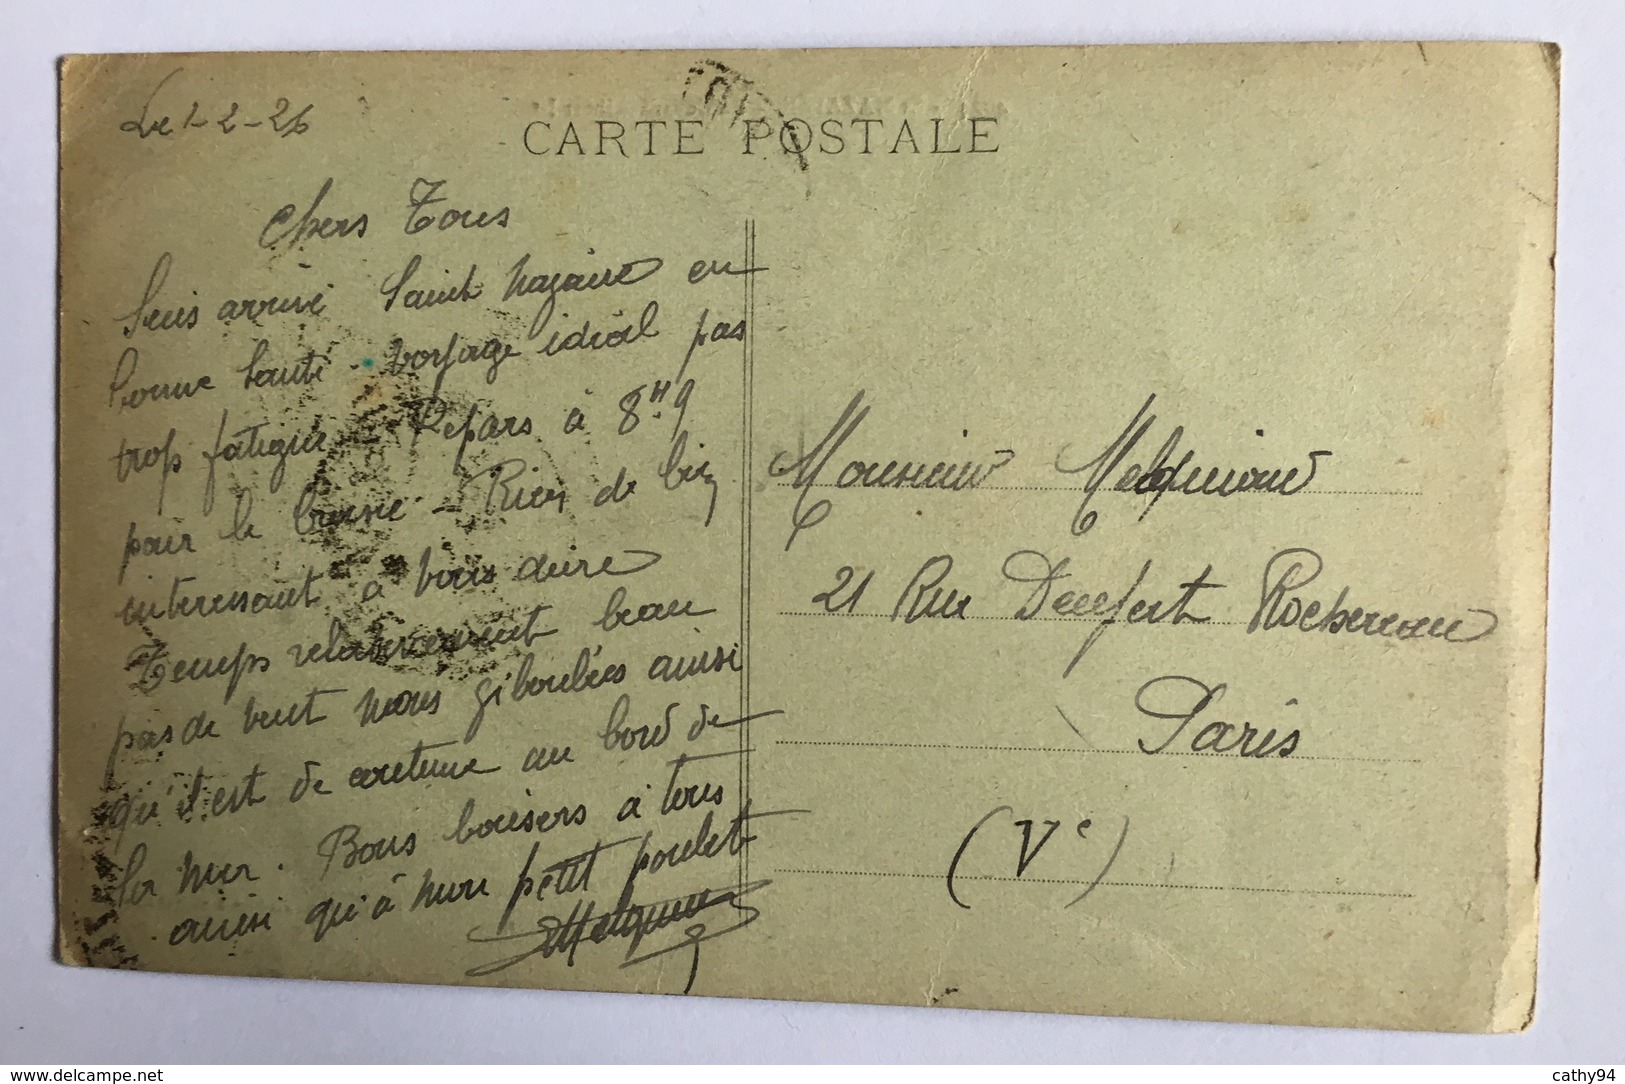 Le 1-2-26
CARTE POSTALE
Chers Tous
Suis arrivé Saint Nazaire en
bonne santé - Voyage idéal pas
trop fatigué - Repars à 8H9
pour le - Rien de bien
interessant à vous dire
Temps relativement beau
pas de vent mais giboulées ainsi
qu'il est de coutume au bord de
la mer. Bons baisers à tous
ainsi qu'à mon petit poulet
Monsieur
21 Rue Denfert Rochereau
Paris
(Ve)
cathy94